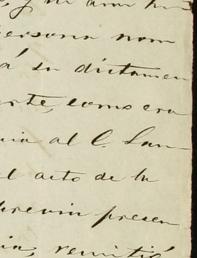 persona nom
á su dictamen
arte, como era
al C. San-
el acto de la
previn presen
remitió